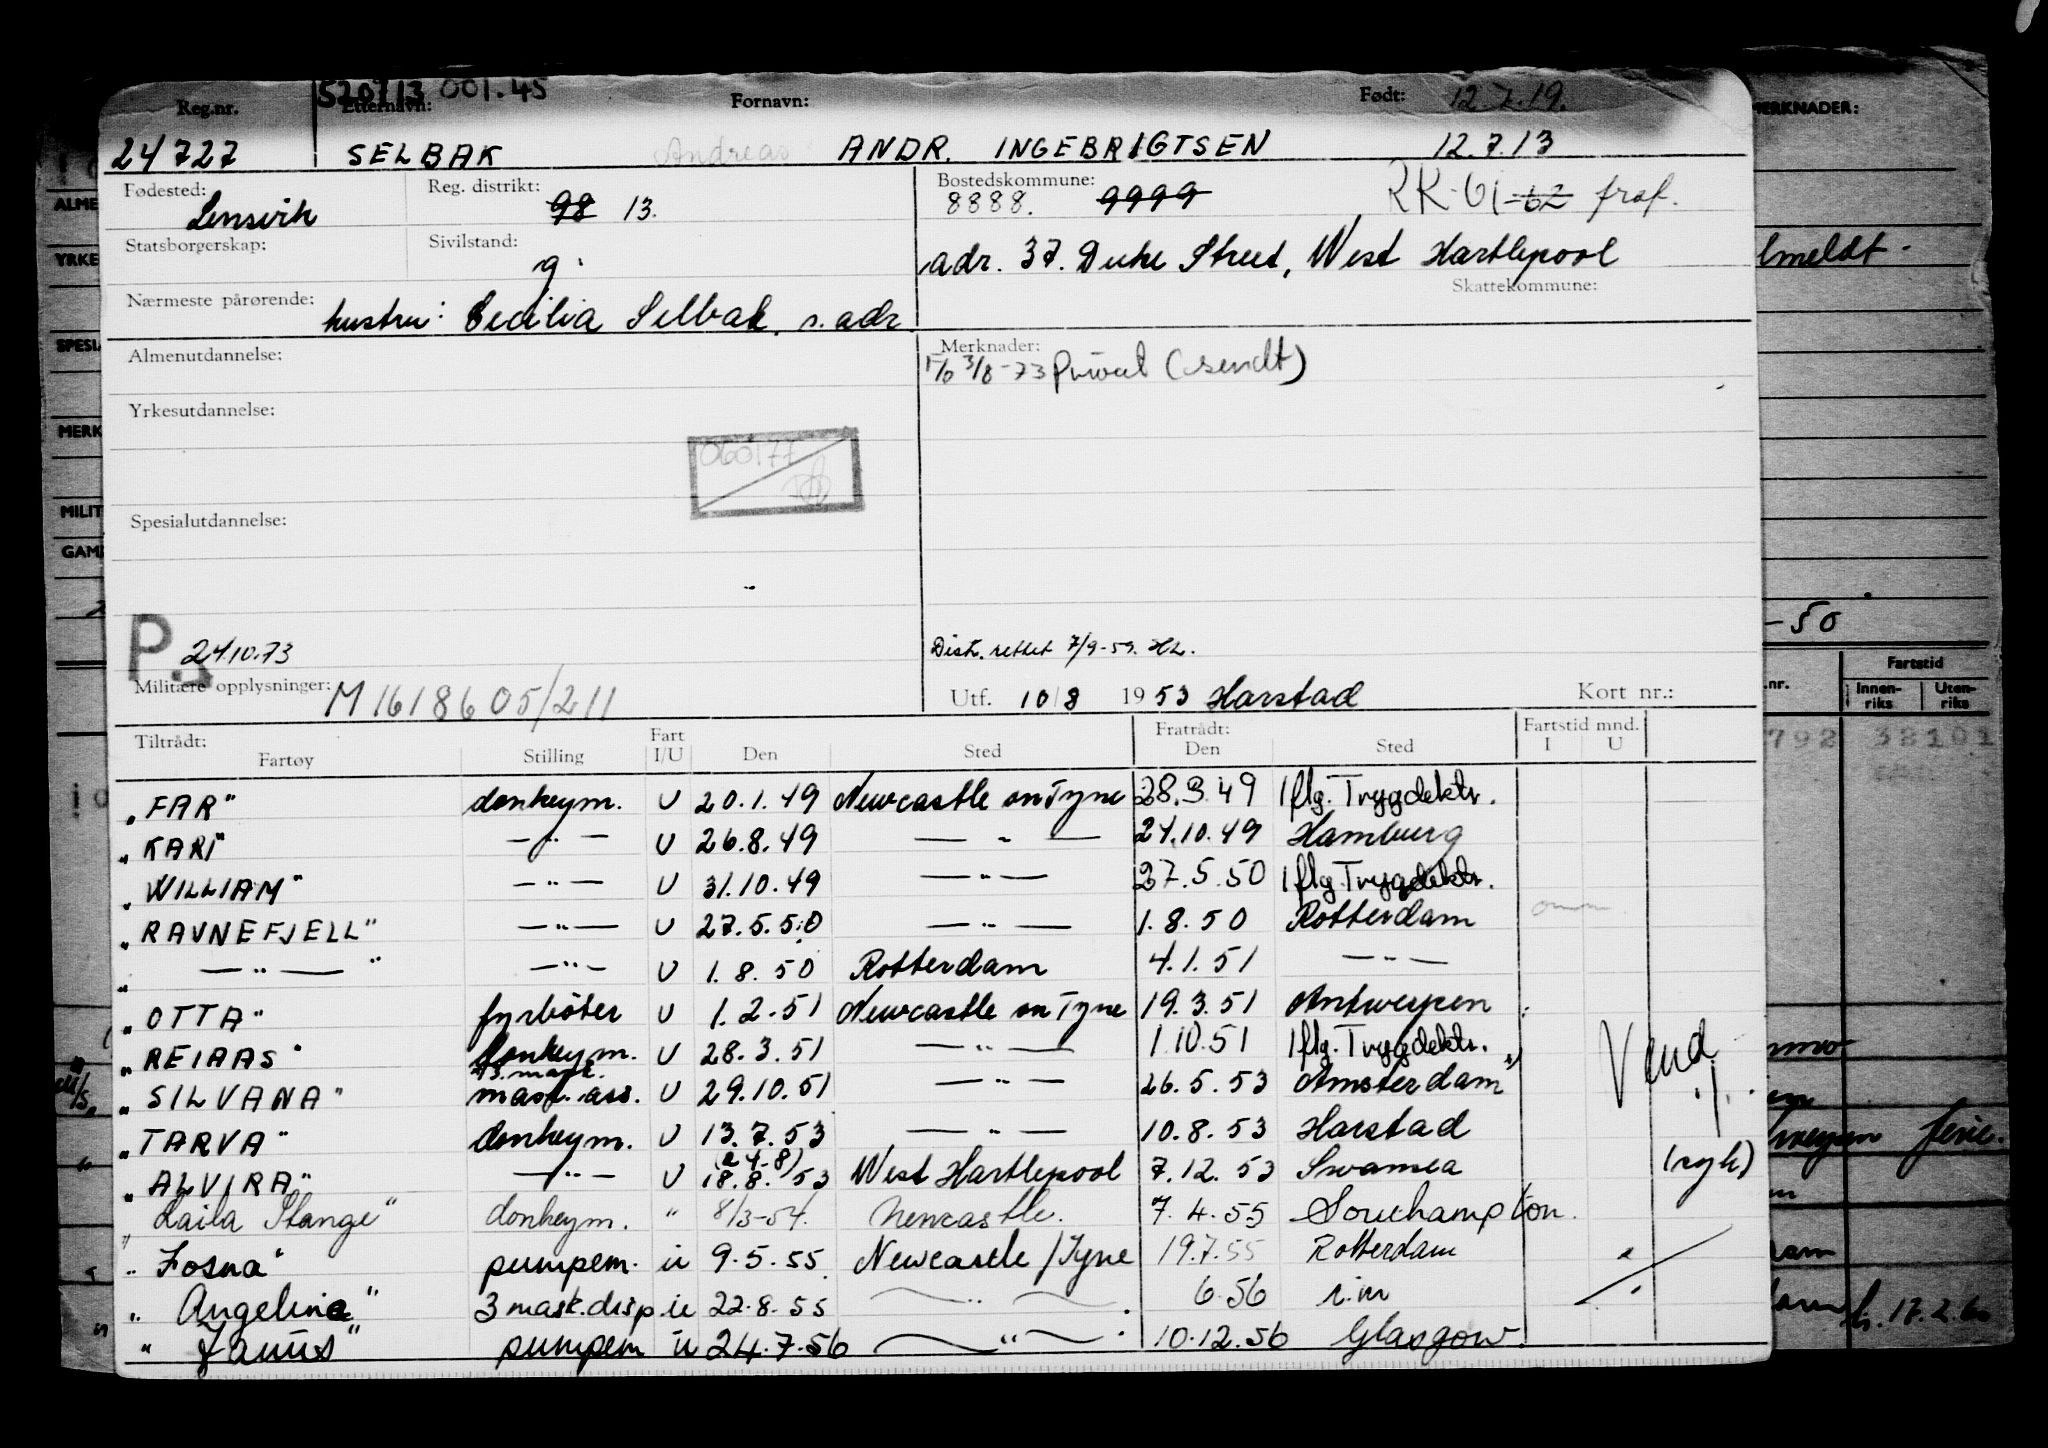 520713 001.45
Reg.nr. Etternavn: Fornavn: Født: 12.7.19.
24727 SELBAK Andreas ANDR. INGEBRIGTSEN 12.7.13
Fødested: Lensvik Reg. distrikt: 98 13. Bostedskommune: 8888. 9999 RK-61-62 fraf.
Statsborgerskap: Sivilstand: g. adr. 37. Duke Street, West Hartlepool
Nærmeste pårørende: hustru: Cecilia Selbak, s. adr. Skattekommune:
Almenutdannelse: Merknader:
F/o 3/8-73 privat (sendt)
Yrkesutdannelse:
060177
Spesialutdannelse:
P 24.10.73 Distr. rettet 7/9-59. HL.
Militære opplysninger: M1618605/211 Utf. 10/8 1953 Harstad Kort nr.:
Tiltrådt: Fart Fratrådt: Fartstid mnd.
Fartøy Stilling I/U Den Sted Den Sted I U
"FAR" donkeym. U 20.1.49 Newcastle on Tyne 28.3.49 Iflg. Trygdektr.
"KARI" — " — U 26.8.49 — " — 21.10.49 Hamburg
"WILLIAM" — " — U 31.10.49 — " — 27.5.50 Iflg. Trygdektr.
"RAVNEFJELL" — " — U 27.5.50 — " — 1.8.50 Rotterdam
" — " — " — " — U 1.8.50 Rotterdam 4.1.51 — " —
"OTTA" fyrbøter U 1.2.51 Newcastle on Tyne 19.3.51 Antwerpen
"REIAAS" donkeym. U 28.3.51 — " — 1.10.51 Iflg. Trygdektr.
"SILVANA" mask. ass. U 29.10.51 — " — 26.5.53 Amsterdam Vend ./.
"TARVA" donkeym. U 13.7.53 — " — 10.8.53 Harstad
"ALVIRA" — " — U 18.8.53 (24-8) West Hartlepool 7.12.53 Swansea (syk)
"Laila Stange" donkeym. " 8/3-54. Newcastle. 7.4.55 Southampton.
"Fosna" pumpem. u 9.5.55 Newcastle/Tyne 19.7.55 Rotterdam
"Angelina" 3 mask. disp u 22.8.55 — " — 6.56 s.m
"Janus" pumpem u 24.7.56 — " — 10.12.56 Glasgow.
MERKNADER:
ALME
YRKE
lmeldt -
SPESI
MERK
MILIT
GAM
-50
Fartstid
.nr. Innen-riks Uten-riks
792 38101
ferie.
17.2.6